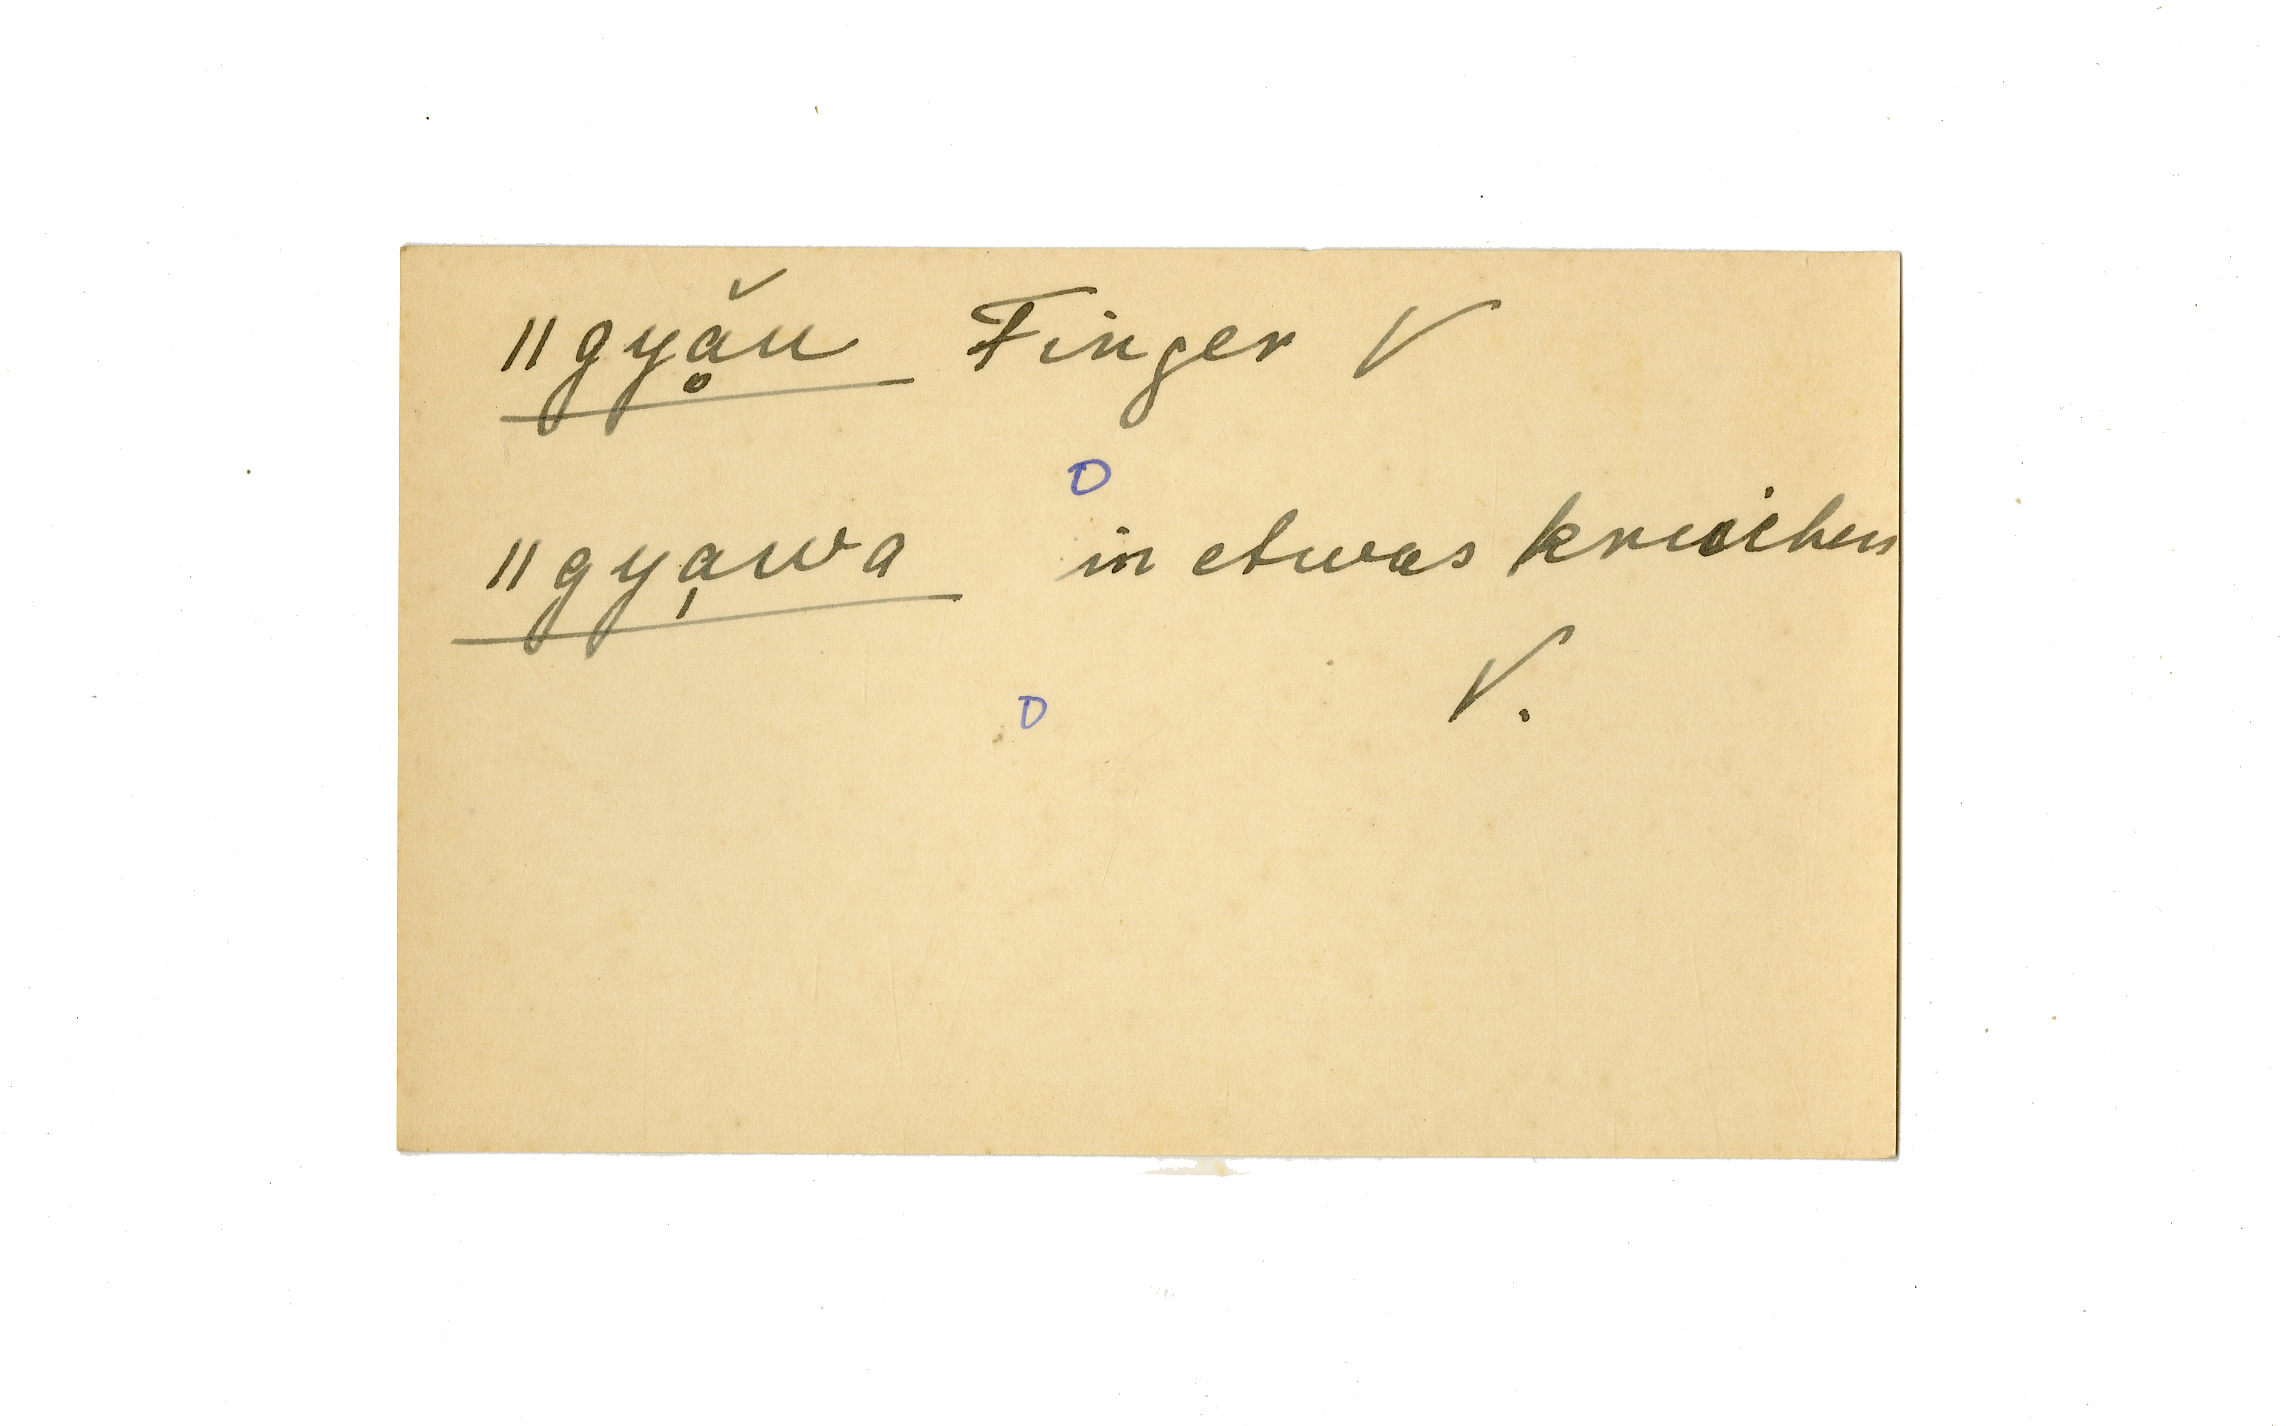 ǁgyḁ̌u Finger V
D
ǁgya̩wa in etwas kriechen
V.
D